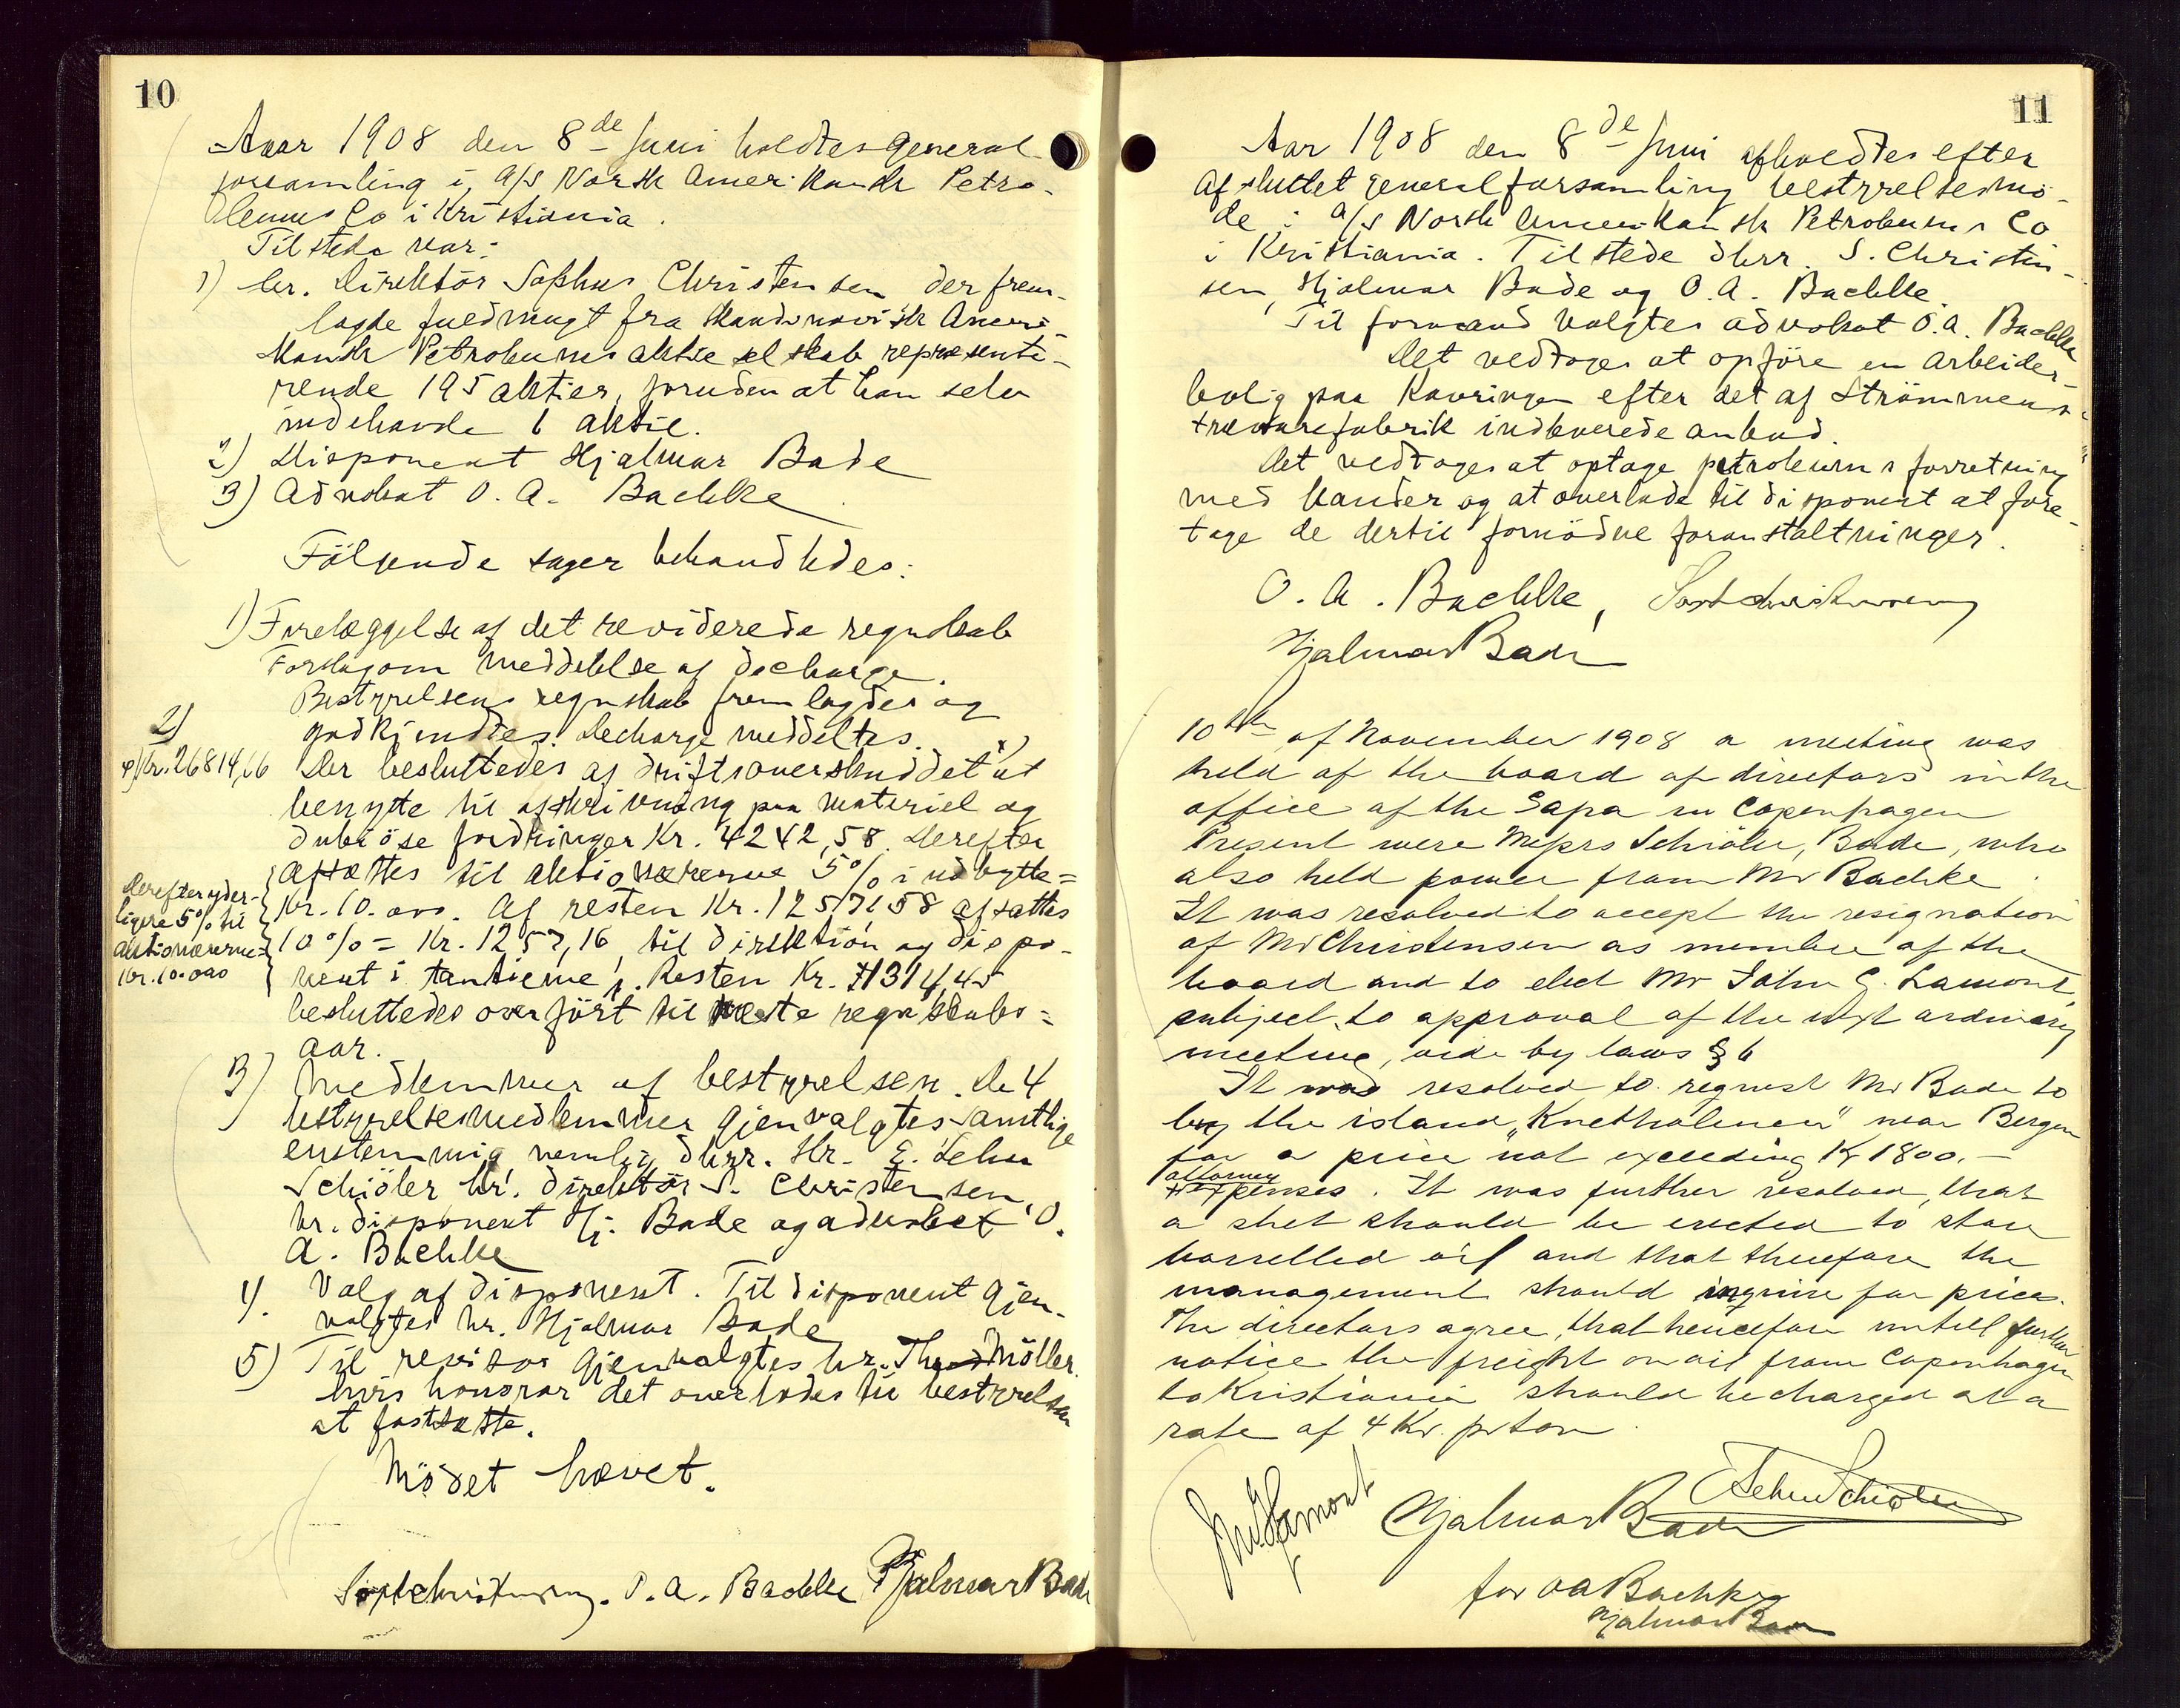 10
Aaar 1908 den 8de Juni holdtes general-
forsamling i A/S Norsk Amerikansk Petro-
leums Co i Kristiania.
Tilstede var:
1) hr. Direktör Sophus Christensen, der frem-
lagde fuldmagt fra Skandinavisk Ameri-
kansk Petroleums aktieselskab repræsente-
rende 195 aktier, foruden at han selv
indehavde 1 aktie.
2) Disponent Hjalmar Bade
3) Advokat O. A. Bachke.
Fölgende sager behandledes:
1) Forelæggelse af det reviderede regnskab
Forslag om meddelelse af decharge.
Bestyrelsens regnskab fremlagdes og
godkjendtes. Decharge meddeltes.
2)
x) Kr. 26814,66
Der besluttedes af driftsoverskuddet x) at
benytte til afskrivning paa materiel og
dubiöse fordringer Kr. 4242,58. Derefter
afsættes til aktionærerne 5% i udbytte =
Kr. 10.000. Af resten Kr. 12571,58 afsattes
10% = Kr. 1257,16 til direktion og dispo-
nent i tantieme. Resten Kr. 1314,45
besluttedes overfört til næste regnskabs=
aar.
Derefter yder-
ligere 5% til
aktionærerne=
kr. 10.000
3) Medlemmer af bestyrelsen. De 4
bestyrelsesmedlemmer gjenvalgtes samtlige
enstemmig nemlig dhrr. Hr. E. Lehn
Schiöler hr. direktör S. Christensen,
hr. disponent Hj. Bade og advokat O.
A. Bachke
4). Valg af disponent. Til disponent gjen-
valgtes hr. Hjalmar Bade
5) Til revisor gjenvalgtes hr. Th Möller
hvis honorar det overlodes til bestyrelsen
at fastsætte.
Mödet hævet.
Soph Christensen. O. A. Bachke Hjalmar Bade
11
Aar 1908 den 8de Juni afholdtes efter
afsluttet generalforsamling bestyrelsesmö-
de i A/S Norsk Amerikansk Petroleums Co
i Kristiania. Tilstede dhrr. S. Christen-
sen, Hjalmar Bade og O. A. Bachke.
Til formand valgtes advokat O. A. Bachke
Det vedtoges at opföre en arbeider-
bolig paa Kavringen efter det af Strömmens
trævarefabrik indleverede anbud.
Det vedtoges at optage petroleums forretning
med kander og at overlade til disponent at fore-
tage de dertil fornödne foranstaltninger.
O. A. Bachke, Soph Christensen
Hjalmar Bade
10th of November 1908 a meeting was
held of the board of directors in the
office of the Sapa in Copenhagen
Present were Messrs Schiöler, Bade, who
also held power from Mr Bachke.
It was resolved to accept the resignation
of Mr Christensen as member of the
board and to elect Mr John G. Lamont,
subject to approval of the next ordinary
meeting, vide by laws § 6
It was resolved to request Mr Bade to
buy the island „Knetholmen" near Bergen
for a price not exceeding Kr 1800.-
+ attorney expenses. It was further resolved, that
a shet should be erected to store
barrelled oil and that therefore the
management should inquire for prices.
The directors agree, that hencefore untill further
notice the freight on oil from Copenhagen
to Kristiania should be charged at a
rate of 4 Kr. pr ton.
Lamont Hjalmar Bade Lehn Schiöler
for OA Bachke
Hjalmar Bade